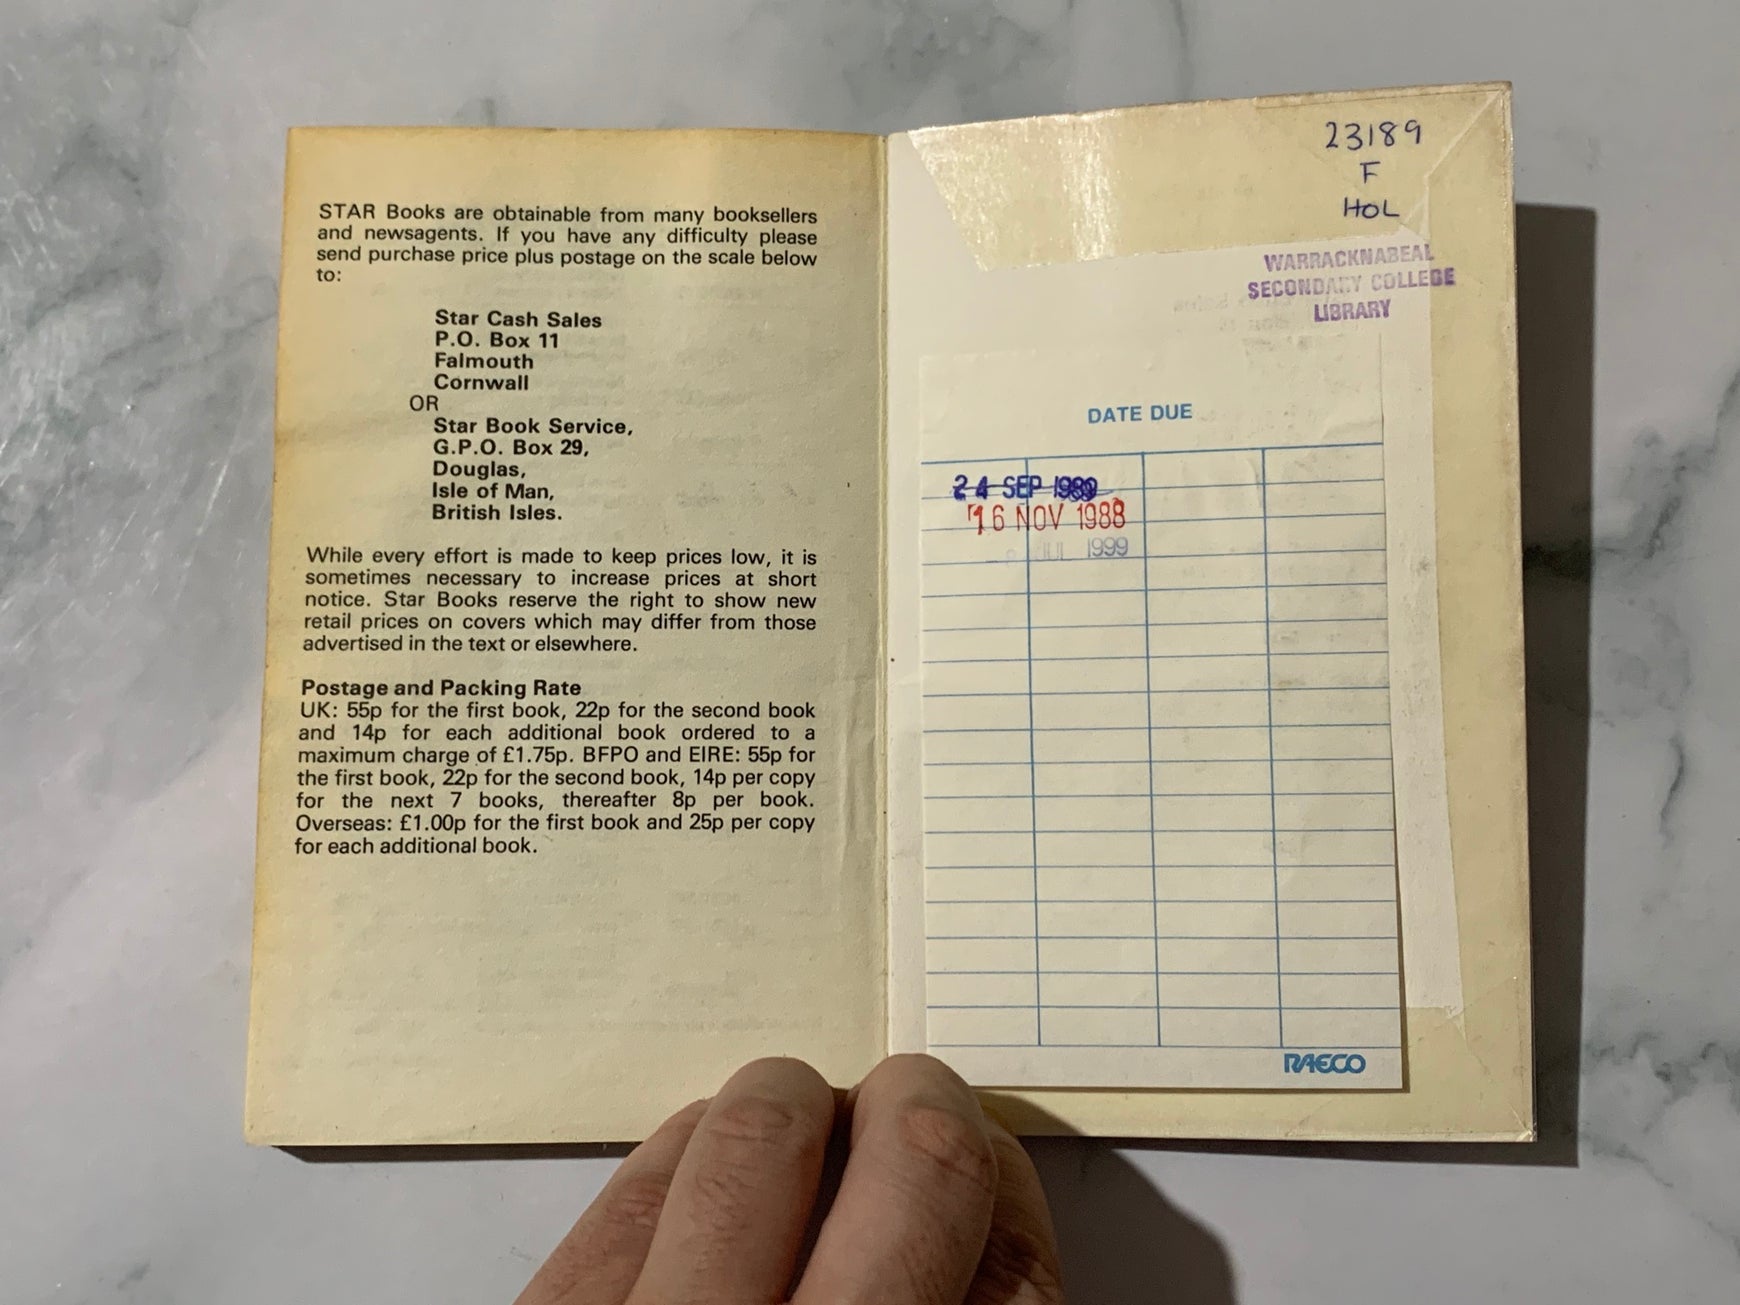 STAR Books are obtainable from many booksellers
and newsagents. If you have any difficulty please
send purchase price plus postage on the scale below
to:
Star Cash Sales
P.O. Box 11
Falmouth
Cornwall
OR
Star Book Service,
G.P.O. Box 29,
Douglas,
Isle of Man,
British Isles.
While every effort is made to keep prices low, it is
sometimes necessary to increase prices at short
notice. Star Books reserve the right to show new
retail prices on covers which may differ from those
advertised in the text or elsewhere.
Postage and Packing Rate
UK: 55p for the first book, 22p for the second book
and 14p for each additional book ordered to a
maximum charge of £1.75p. BFPO and EIRE: 55p for
the first book, 22p for the second book, 14p per copy
for the next 7 books, thereafter 8p per book.
Overseas: £1.00p for the first book and 25p per copy
for each additional book.
23189
F
HOL
WARRACKNABEAL
SECONDARY COLLEGE
LIBRARY
DATE DUE
24 SEP
16 NOV 1988
JUL 1999
RAECO